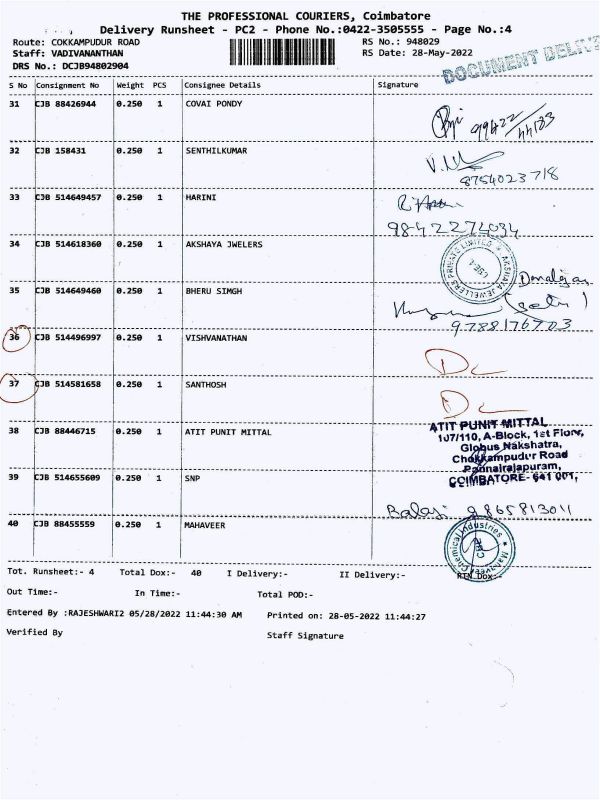 THE PROFESSIONAL COURIERS, Coimbatore
Delivery Runsheet - PC2 - Phone No.:0422-3505555 - Page No.:4
Route: COKKAMPUDUR ROAD RS No.: 948029
Staff: VADIVANANTHAN RS Date: 28-May-2022
DRS No.: DCJB94802904
DOCUMENT DELIV
S No Consignment No Weight PCS Consignee Details Signature
31 CJB 88426944 0.250 1 COVAI PONDY
99422
44183
32 CJB 158431 0.250 1 SENTHILKUMAR
8754023718
33 CJB 514649457 0.250 1 HARINI
9842274034
34 CJB 514618360 0.250 1 AKSHAYA JWELERS
AKSHAYA JEWELLERS PRIVATE LIMITED
35 CJB 514649460 0.250 1 BHERU SIMGH
9788176703
36 CJB 514496997 0.250 1 VISHVANATHAN
DC
37 CJB 514581658 0.250 1 SANTHOSH
DC
38 CJB 88446715 0.250 1 ATIT PUNIT MITTAL
ATIT PUNIT MITTAL
107/110, A-Block, 1st Floor,
Globus Nakshatra,
Chokkampudur Road
Ponnairajapuram,
COIMBATORE- 641 001,
39 CJB 514655609 0.250 1 SNP
Balaji 9865813011
40 CJB 88455559 0.250 1 MAHAVEER
Mahaveer Chemical Industries
Tot. Runsheet:- 4 Total Dox:- 40 I Delivery:- II Delivery:- RTN Dox:-
Out Time:- In Time:- Total POD:-
Entered By :RAJESHWARI2 05/28/2022 11:44:30 AM Printed on: 28-05-2022 11:44:27
Verified By Staff Signature